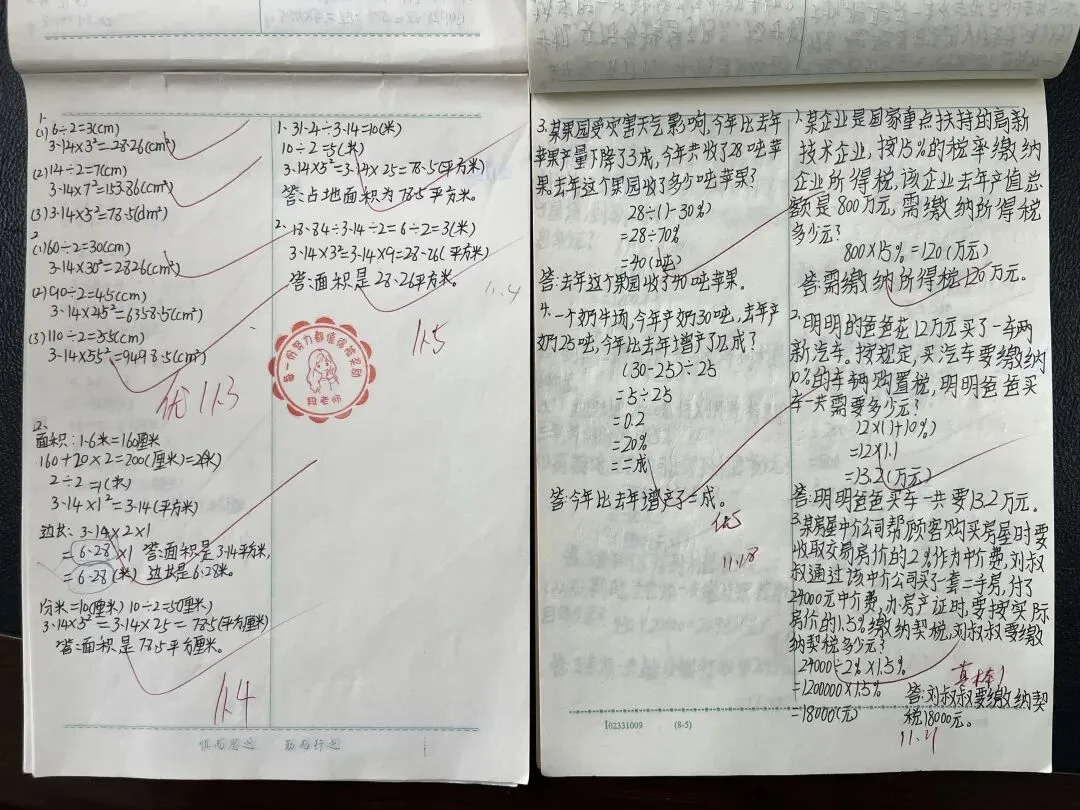 1.
(1) 6÷2=3(cm)
3.14×3²=28.26(cm²)
(2) 14÷2=7(cm)
3.14×7²=153.86(cm²)
(3) 3.14×5²=78.5(dm²)
2
(1) 60÷2=30(cm)
3.14×30²=2826(cm²)
(2) 90÷2=45(cm)
3.14×45²=6358.5(cm²)
(3) 110÷2=55(cm)
3.14×55²=9498.5(cm²)
优 11.3
2、
面积:1.6米=160厘米
160+20×2=200(厘米)=2(米)
2÷2=1(米)
3.14×1²=3.14(平方米)
边长:3.14×2×1
=6.28×1 答:面积是3.14平方米,
=6.28(米) 边长是6.28米。
1分米=10(厘米) 10÷2=5(厘米)
3.14×5²=3.14×25=78.5(平方厘米)
答:面积是78.5平方厘米。
11.4
慎而思之 勤而行之
1. 31.4÷3.14=10(米)
10÷2=5(米)
3.14×5²=3.14×25=78.5(平方米)
答:占地面积为78.5平方米。
2. 18.84÷3.14÷2=6÷2=3(米)
3.14×3²=3.14×9=28.26(平方米)
答:面积是28.26平方米。
11.4
11.5
每一份努力都值得被奖励
段老师
3.某果园受灾害天气影响,今年比去年
苹果产量下降了3成,今年共收了28吨苹
果,去年这个果园收了多少吨苹果?
28÷(1-30%)
=28÷70%
=40(吨)
答:去年这个果园收了40吨苹果。
4.一个奶牛场,今年产奶30吨,去年产
奶25吨,今年比去年增产了几成?
(30-25)÷25
=5÷25
=0.2
=20%
=二成
答:今年比去年增产了二成。
11.28
I02331009 (8-5)
1.某企业是国家重点扶持的高新
技术企业,按15%的税率缴纳
企业所得税,该企业去年产值总
额是800万元,需缴纳所得税
多少元?
800×15%=120(万元)
答:需缴纳所得税120万元。
2.明明的爸爸花12万元买了一车辆
新汽车。按规定,买汽车要缴纳
10%的车辆购置税,明明爸爸买
车一共需要多少元?
12×(1+10%)
=12×1.1
=13.2(万元)
答:明明爸爸买车一共要13.2万元。
3.某房屋中介公司帮顾客购买房屋时要
收取交易房价的2%作为中介费,刘叔
叔通过该中介公司买了一套二手房,付了
24000元中介费,办房产证时,要按实际
房价的1.5%缴纳契税,刘叔叔要缴
纳契税多少元?
24000÷2%×1.5%
=1200000×1.5%
=18000(元)
答:刘叔叔要缴纳契
税18000元。
真棒!